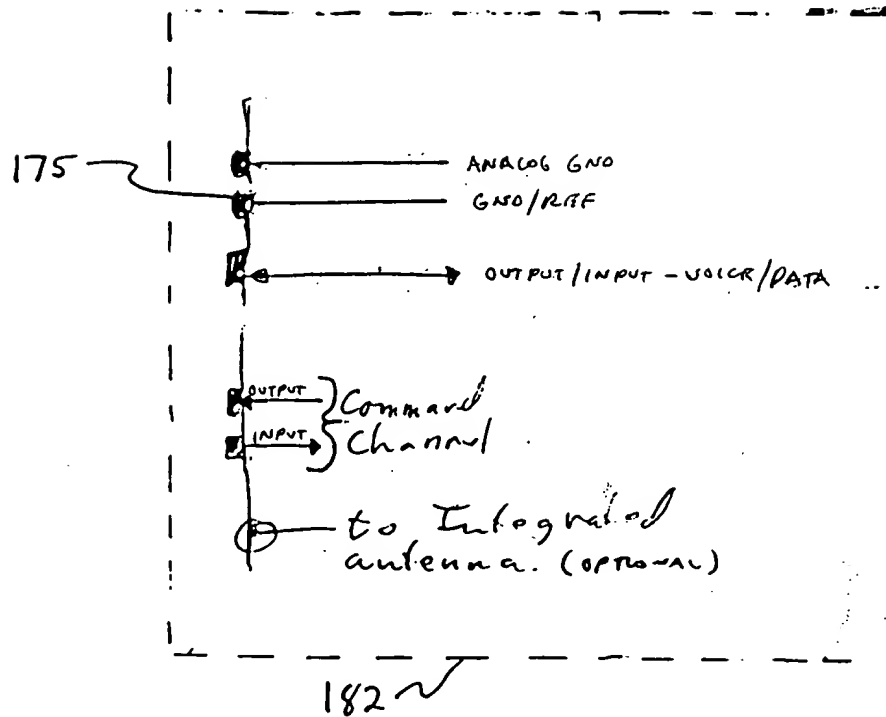 175
ANALOG GND
GND/REF
OUTPUT/INPUT - VOICE/DATA
OUTPUT
INPUT
Command
Channel
to Integrated
antenna. (OPTIONAL)
182